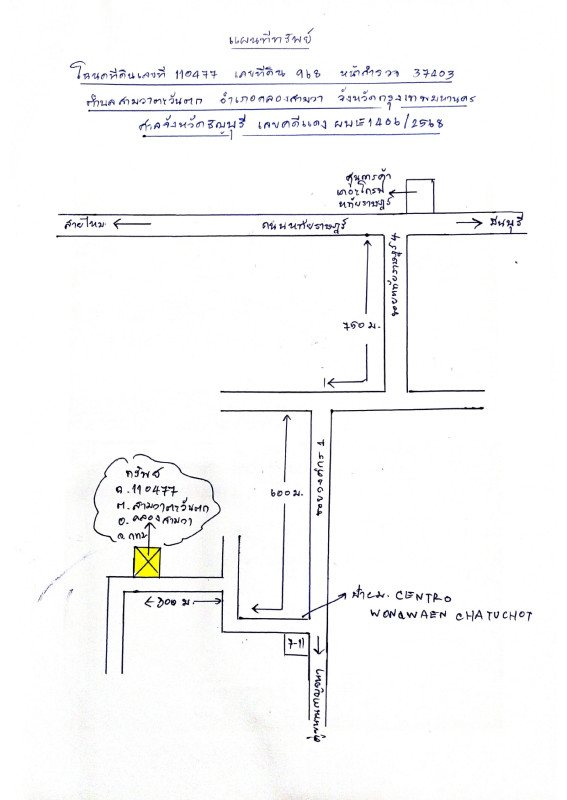 แผนที่ทรัพย์
โฉนดที่ดินเลขที่ 110477 เลขที่ดิน 968 หน้าสำรวจ 37403
ตำบลสามวาตะวันตก อำเภอคลองสามวา จังหวัดกรุงเทพมหานคร
ศาลจังหวัดธัญบุรี เลขคดีแดง ผบE1406/2568
ศูนย์การค้า
หทัยราษฎร์
สายไหม
ถนนหทัยราษฎร์
มีนบุรี
750 ม.
600 ม.
ทรัพย์
ฉ. 110477
ต. สามวาตะวันตก
อ. คลองสามวา
จ. กทม
800 ม.
CENTRO
WONGWAEN CHATUCHOT
7-11